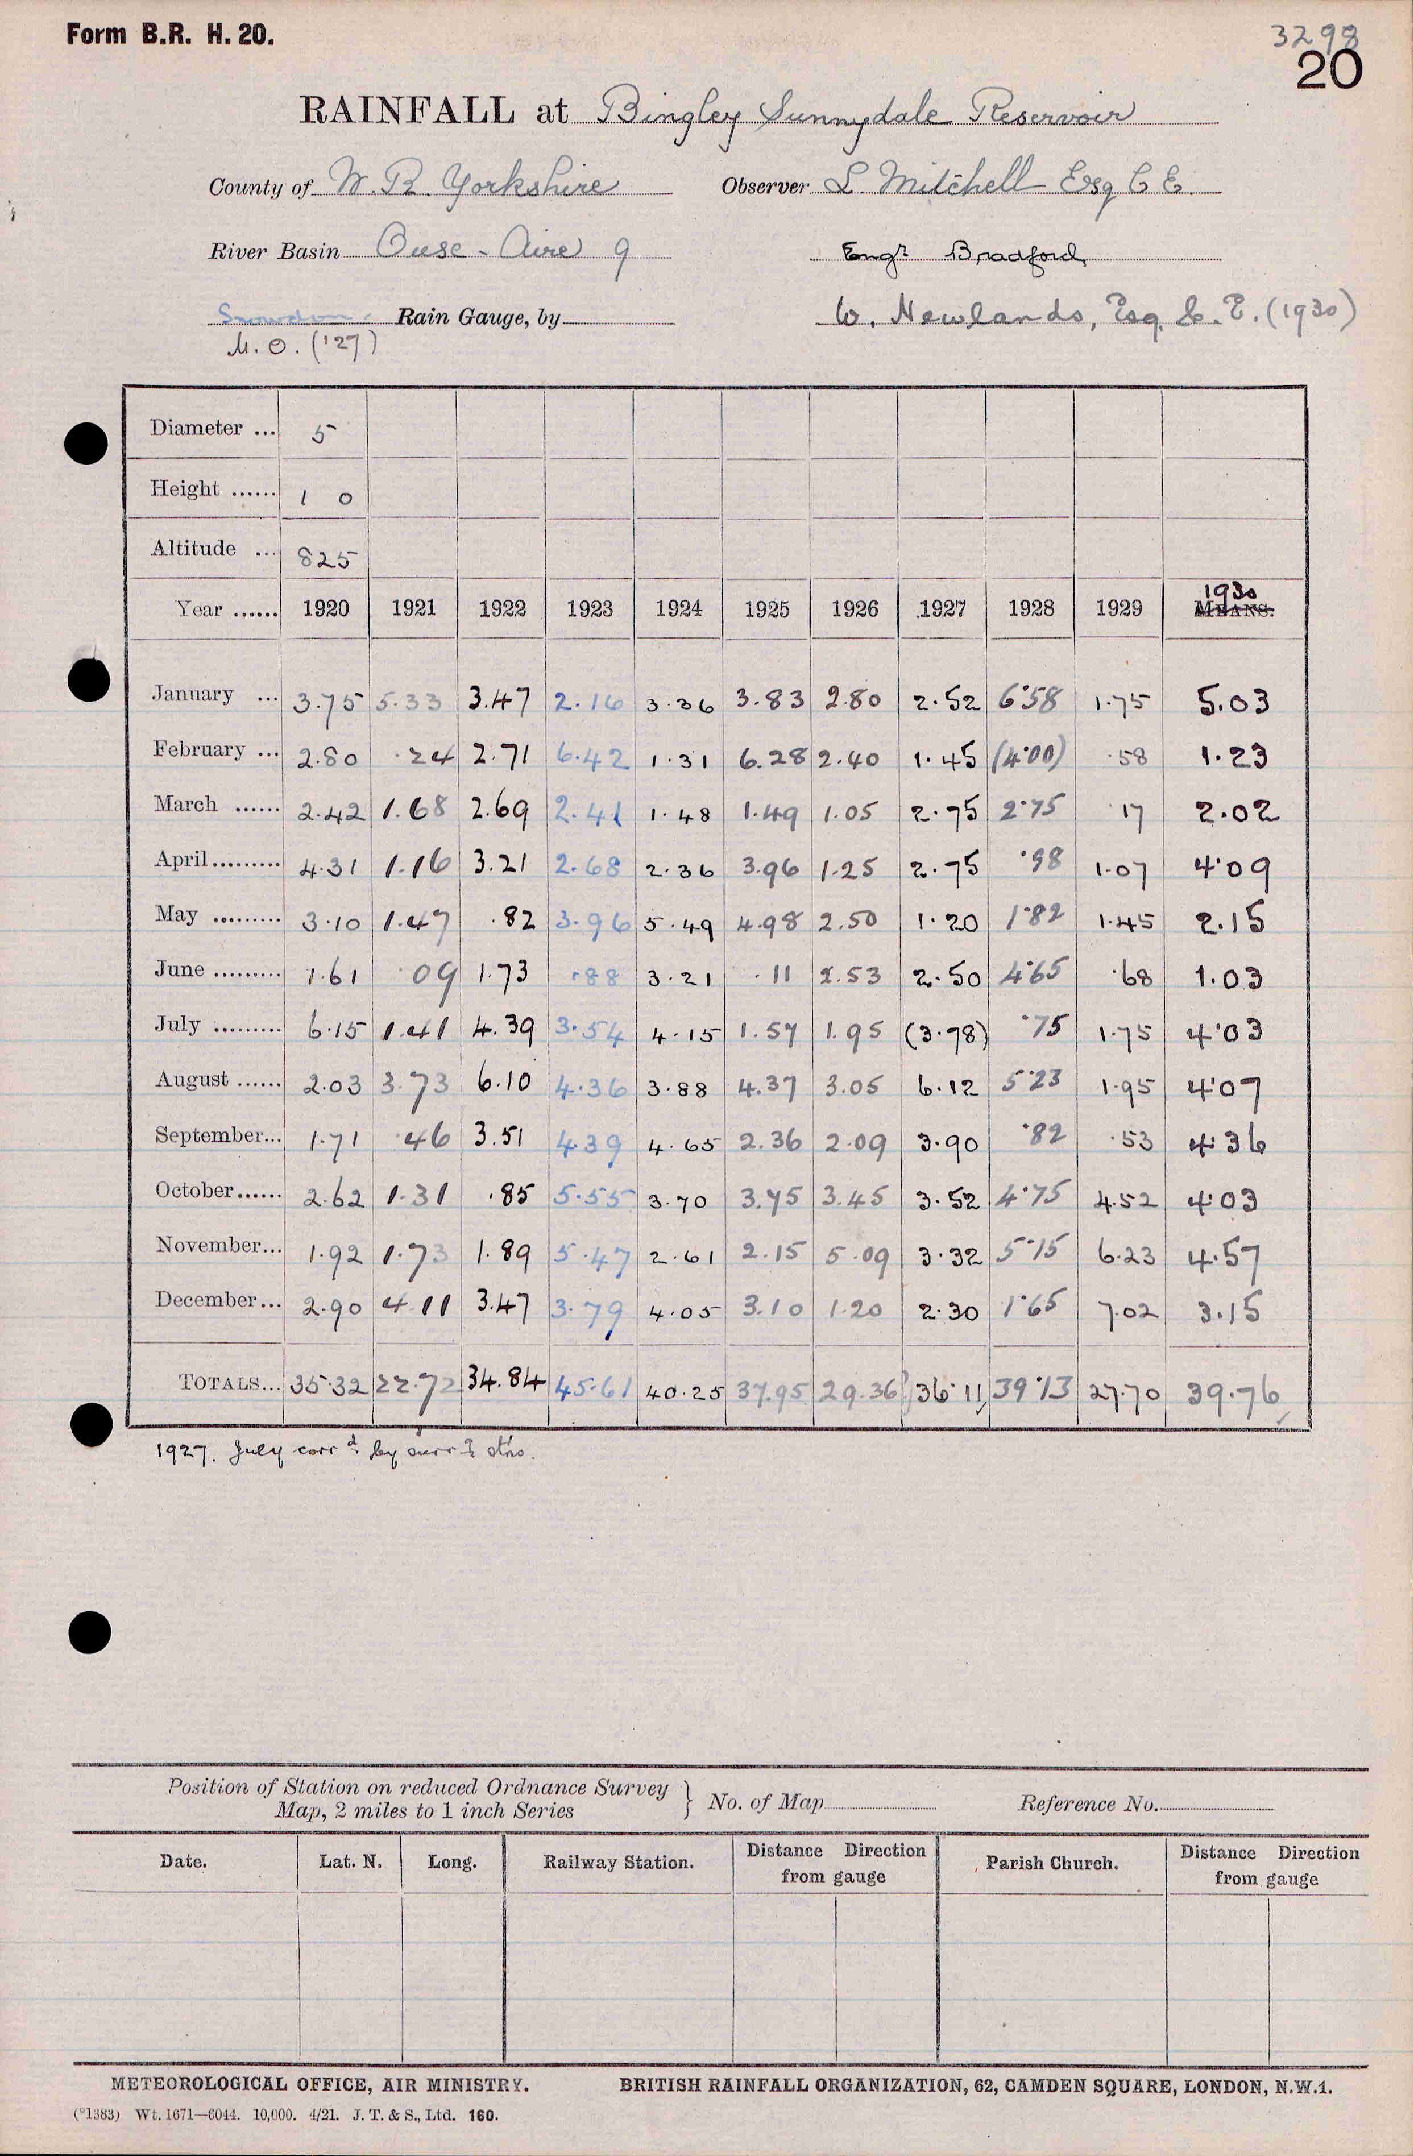 Form B.R. H. 20.
3298
20
RAINFALL at Bingley Sunnydale Reservoir
County of W. R. Yorkshire Observer L. Mitchell Esq C E.
River Basin Ouse - Aire 9 Engr. Bradford
Snowdon. Rain Gauge, by W. Newlands, Esq. C. E. (1930)
M. O. ('27)
Diameter ... 5
Height ...... 1 0
Altitude ... 825
Year ...... 1920 1921 1922 1923 1924 1925 1926 1927 1928 1929 1930 MEANS.
January ... 3.75 5.33 3.47 2.16 3.36 3.83 2.80 2.52 6.58 1.75 5.03
February ... 2.80 .24 2.71 6.42 1.31 6.28 2.40 1.45 (4.00) .58 1.23
March ...... 2.42 1.68 2.69 2.41 1.48 1.49 1.05 2.75 2.75 .17 2.02
April ......... 4.31 1.16 3.21 2.68 2.36 3.96 1.25 2.75 .98 1.07 4.09
May ......... 3.10 1.47 .82 3.96 5.49 4.98 2.50 1.20 1.82 1.45 2.15
June ......... 1.61 .09 1.73 .88 3.21 .11 2.53 2.50 4.65 .68 1.03
July ......... 6.15 1.41 4.39 3.54 4.15 1.57 1.95 (3.78) .75 1.75 4.03
August ...... 2.03 3.73 6.10 4.36 3.88 4.37 3.05 6.12 5.23 1.95 4.07
September... 1.71 .46 3.51 4.39 4.65 2.36 2.09 3.90 .82 .53 4.36
October...... 2.62 1.31 .85 5.55 3.70 3.75 3.45 3.52 4.75 4.52 4.03
November... 1.92 1.73 1.89 5.47 2.61 2.15 5.09 3.32 5.15 6.23 4.57
December... 2.90 4.11 3.47 3.79 4.05 3.10 1.20 2.30 1.65 7.02 3.15
TOTALS... 35.32 22.72 34.84 45.61 40.25 37.95 29.36 36.11 39.13 27.70 39.76
1927. July corrd. by surrg. stns.
Position of Station on reduced Ordnance Survey
Map, 2 miles to 1 inch Series } No. of Map Reference No.
Date. Lat. N. Long. Railway Station. Distance Direction from gauge Parish Church. Distance Direction from gauge
METEOROLOGICAL OFFICE, AIR MINISTRY. BRITISH RAINFALL ORGANIZATION, 62, CAMDEN SQUARE, LONDON, N.W.1.
(*1383) Wt. 1671—6044. 10,000. 4/21. J. T. & S., Ltd. 160.